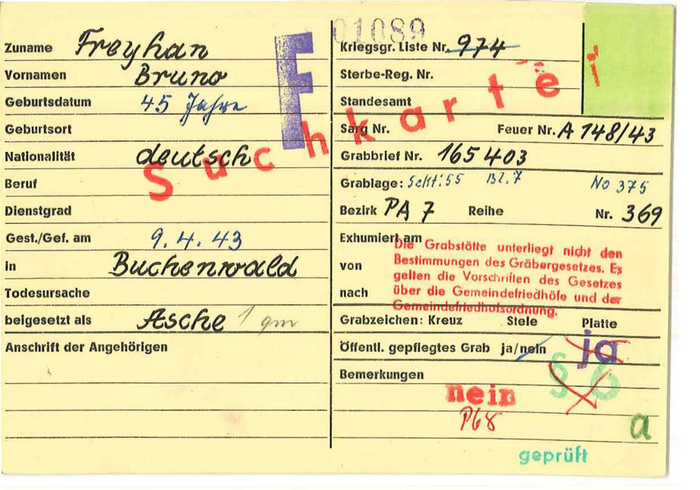 01089
F
Suchkartei
Zuname Freyhan
Vornamen Bruno
Geburtsdatum 45 Jahre
Geburtsort
Nationalität deutsch
Beruf
Dienstgrad
Gest./Gef. am 9.4.43
in Buchenwald
Todesursache
beigesetzt als Asche 1 qm
Anschrift der Angehörigen
Kriegsgr. Liste Nr. 974
Sterbe-Reg. Nr.
Standesamt
Sarg Nr. Feuer Nr. A 148/43
Grabbrief Nr. 165403
Grablage: Sekt: 55 Bl. 7 No 375
Bezirk PA 7 Reihe Nr. 369
Exhumiert am
von
nach
Die Grabstätte unterliegt nicht den
Bestimmungen des Gräbergesetzes. Es
gelten die Vorschriften des Gesetzes
über die Gemeindefriedhöfe und der
Gemeindefriedhofsordnung.
Grabzeichen: Kreuz Stele Platte
Öffentl. gepflegtes Grab ja/nein ja
§ 6
Bemerkungen
nein
P68
a
geprüft